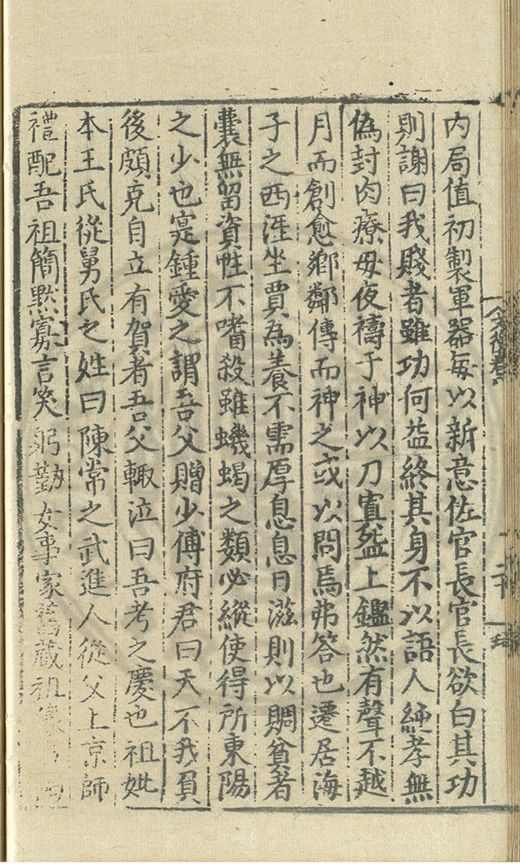 内局值初製軍器每以新意佐官長官長欲白其功
則謝曰我賤者雖功何益終其身不以語人純孝無
偽刲肉療母夜禱于神以刀寘盤上鑑然有聲不越
月而創愈鄉鄰傳而神之或以問焉弗答也遷居海
子之西涯坐賈為養不需厚息息日滋則以賙貧者
囊無留資性不嗜殺雖蟣蝎之類必縱使得所東陽
之少也寔鍾愛之謂吾父贈少傅府君曰天不我負
後頗克自立有賀者吾父輒泣曰吾考之慶也祖妣
本王氏從舅氏之姓曰陳常之武進人從父上京師
禮配吾祖簡默寡言笑躬勤女事家舊藏祖像